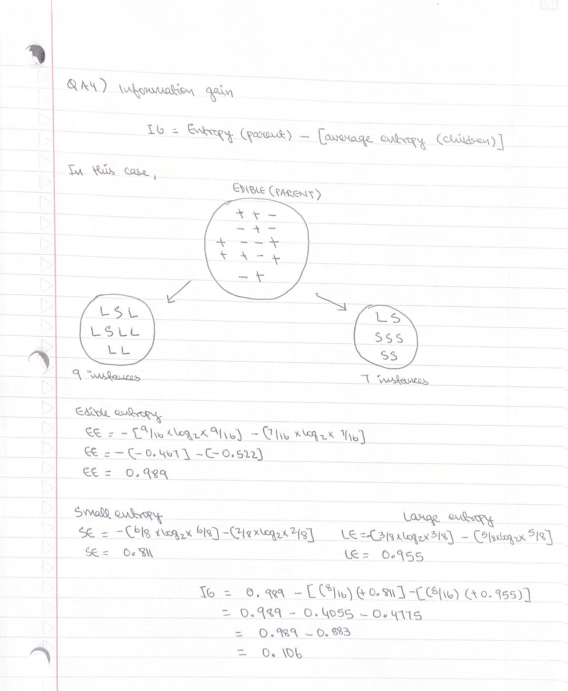 QA4) Information gain
IG = Entropy (parent) – [average entropy (children)]
In this case,
EDIBLE (PARENT)
+ + –
– + –
+ – – +
+ + – +
– +
L S L
L S L L
L L
9 instances
L S
S S S
S S
7 instances
Edible entropy
EE = -[9/16 × log2 × 9/16] - (7/16 × log2 × 7/16]
EE = -(-0.467] - (-0.522]
EE = 0.989
Small entropy
SE = -[6/8 × log2 × 6/8] - [2/8 × log2 × 2/8]
SE = 0.811
Large entropy
LE = -[3/8 × log2 × 3/8] - [5/8 × log2 × 5/8]
LE = 0.955
IG = 0.989 - [(8/16) (+0.811] - [(8/16) (+0.955)]
= 0.989 - 0.4055 - 0.4775
= 0.989 - 0.883
= 0.106